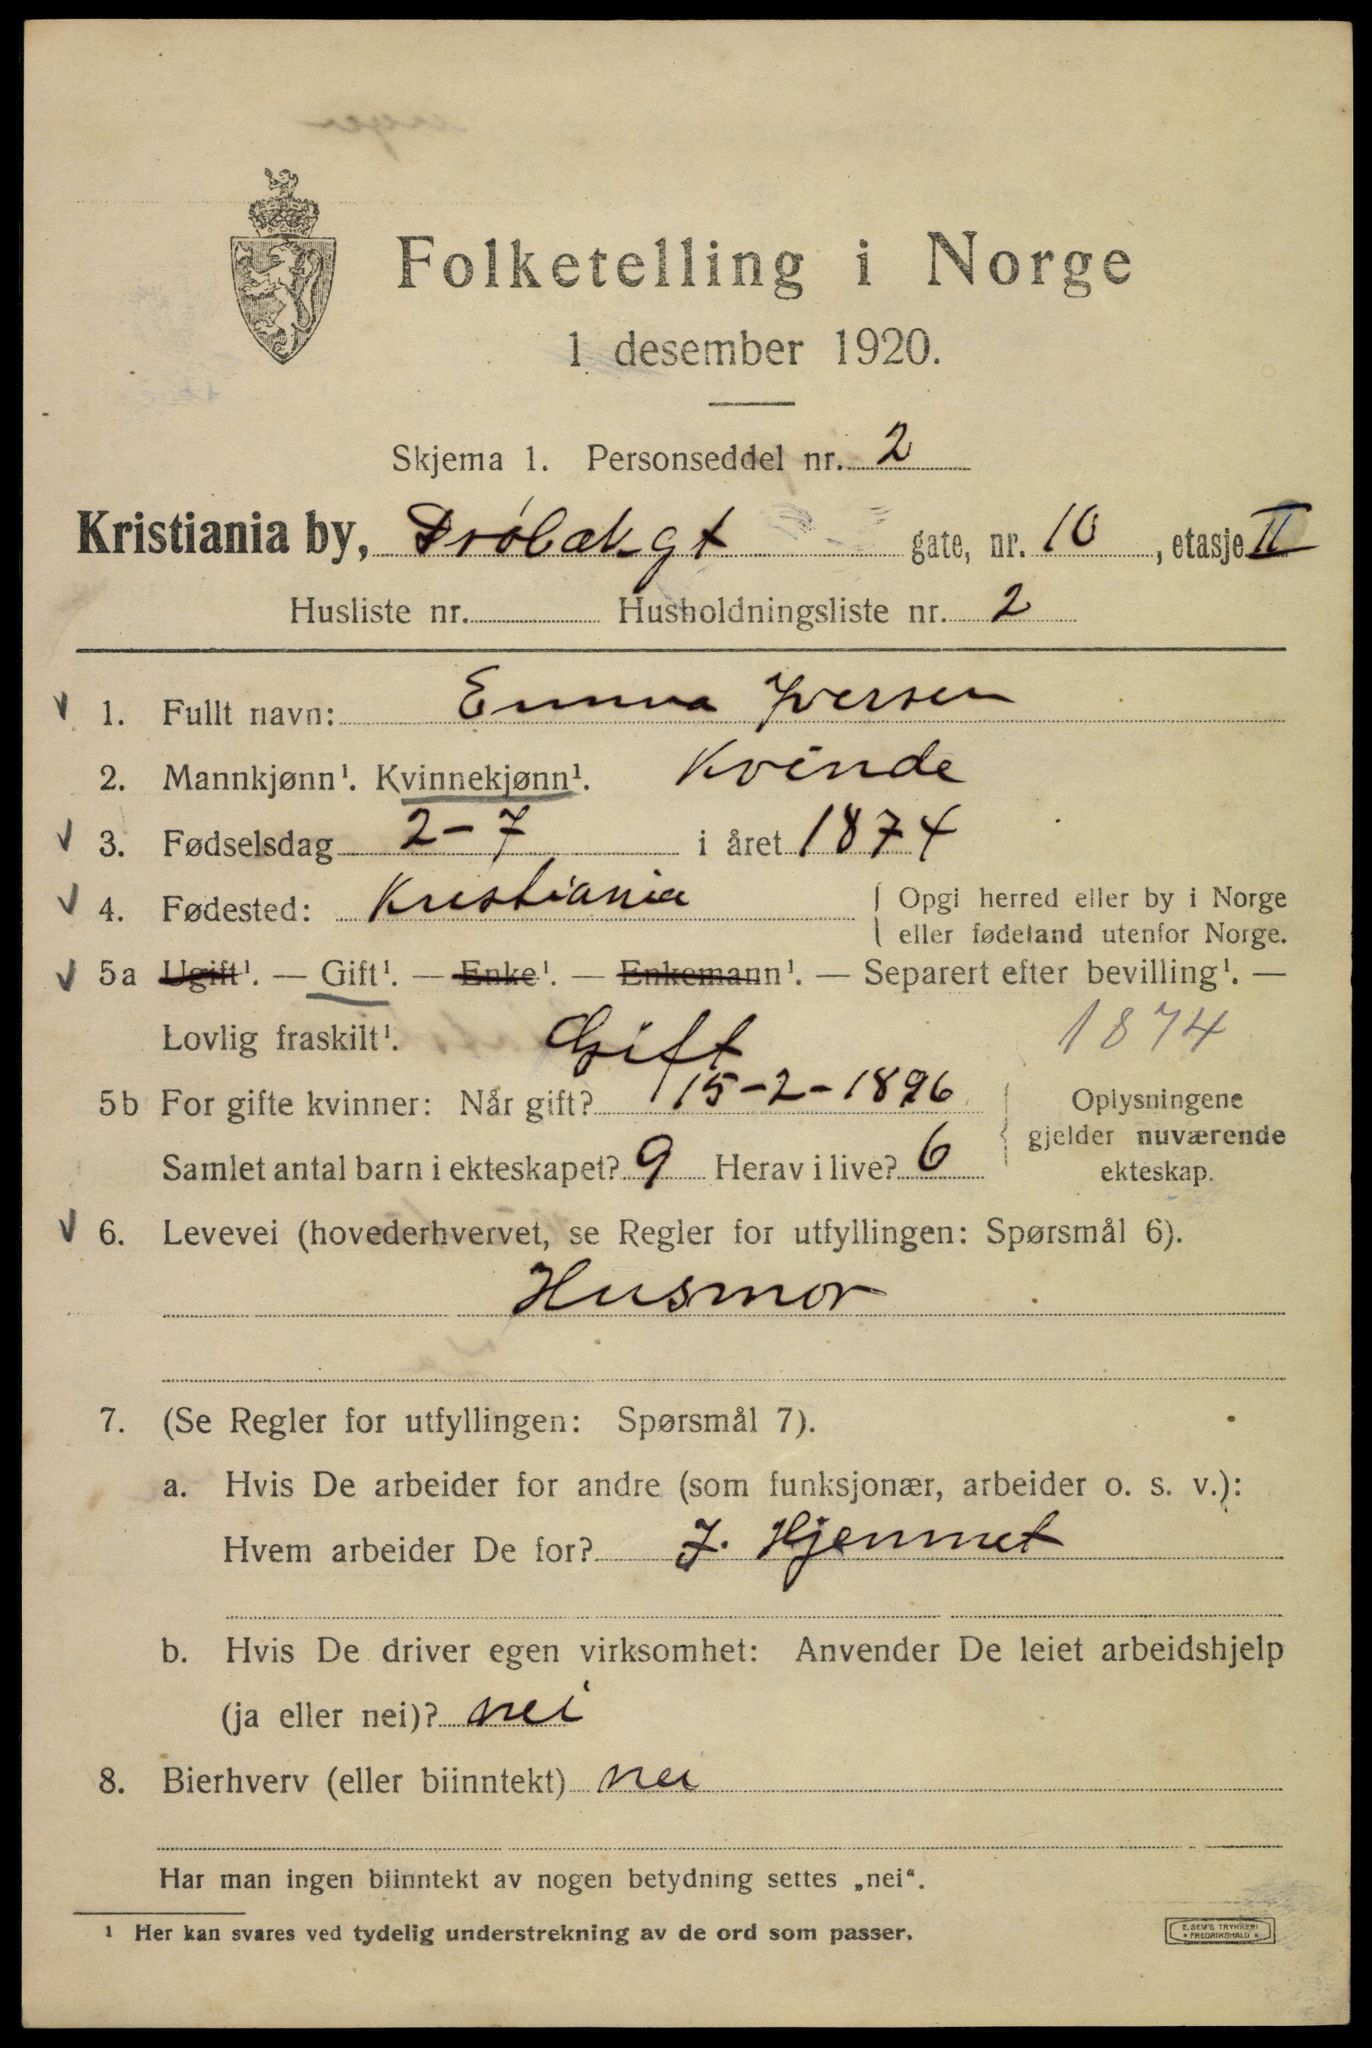 Folketelling i Norge
1 desember 1920.
Skjema 1. Personseddel nr. 2
Kristiania by, Drøbakgt gate, nr. 10, etasje II
Husliste nr. Husholdningsliste nr. 2
1. Fullt navn: Emma Iversen
2. Mannkjønn¹. Kvinnekjønn¹. Kvinde
3. Fødselsdag 2-7 i året 1874
4. Fødested: Kristiania { Opgi herred eller by i Norge
eller fødeland utenfor Norge.
5a Ugift¹. — Gift¹. — Enke¹. — Enkemann¹. — Separert efter bevilling¹. —
Lovlig fraskilt¹. Gift 1874
5b For gifte kvinner: Når gift? 15-2-1896 { Oplysningene
gjelder nuværende
Samlet antal barn i ekteskapet? 9 Herav i live? 6 ekteskap.
6. Levevei (hovederhvervet, se Regler for utfyllingen: Spørsmål 6).
Husmor
7. (Se Regler for utfyllingen: Spørsmål 7).
a. Hvis De arbeider for andre (som funksjonær, arbeider o. s. v.):
Hvem arbeider De for? I. Hjemmet
b. Hvis De driver egen virksomhet: Anvender De leiet arbeidshjelp
(ja eller nei)? nei
8. Bierhverv (eller biinntekt) nei
Har man ingen biinntekt av nogen betydning settes „nei“.
¹ Her kan svares ved tydelig understrekning av de ord som passer.
E. SEM'S TRYKKERI
* FREDRIKSHALD *